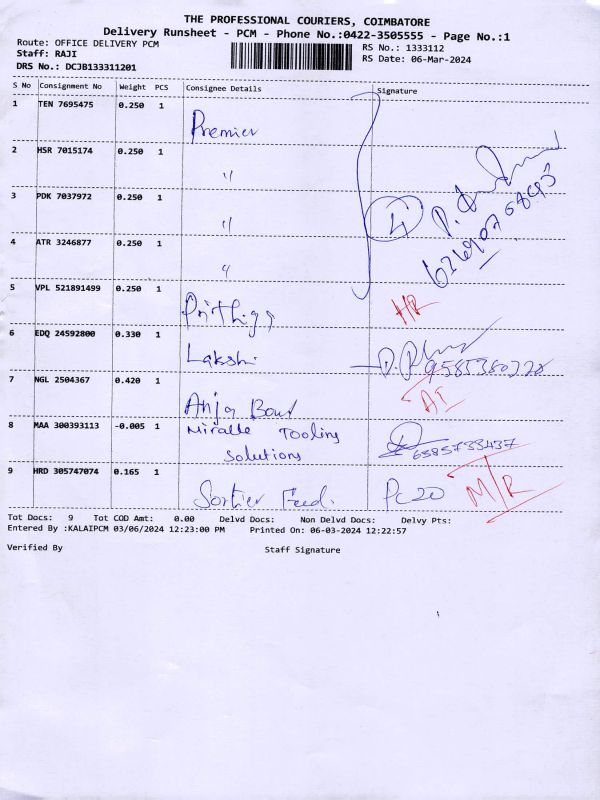 THE PROFESSIONAL COURIERS, COIMBATORE
Delivery Runsheet - PCM - Phone No.:0422-3505555 - Page No.:1
Route: OFFICE DELIVERY PCM
Staff: RAJI
DRS No.: DCJB133311201
RS No.: 1333112
RS Date: 06-Mar-2024
S No Consignment No Weight PCS Consignee Details Signature
1 TEN 7695475 0.250 1 Premier
2 HSR 7015174 0.250 1 "
3 PDK 7037972 0.250 1 " 4
4 ATR 3246877 0.250 1 "
5 VPL 521891499 0.250 1 HR
6 EDQ 24592800 0.330 1 Lakshi
7 NGL 2504367 0.420 1
8 MAA 300393113 -0.005 1 Miracle Tooling
Solutions 6385733437
9 HRD 305747074 0.165 1 Feed. M/R
Tot Docs: 9 Tot COD Amt: 0.00 Delvd Docs: Non Delvd Docs: Delvy Pts:
Entered By :KALAIPCM 03/06/2024 12:23:00 PM Printed On: 06-03-2024 12:22:57
Verified By Staff Signature